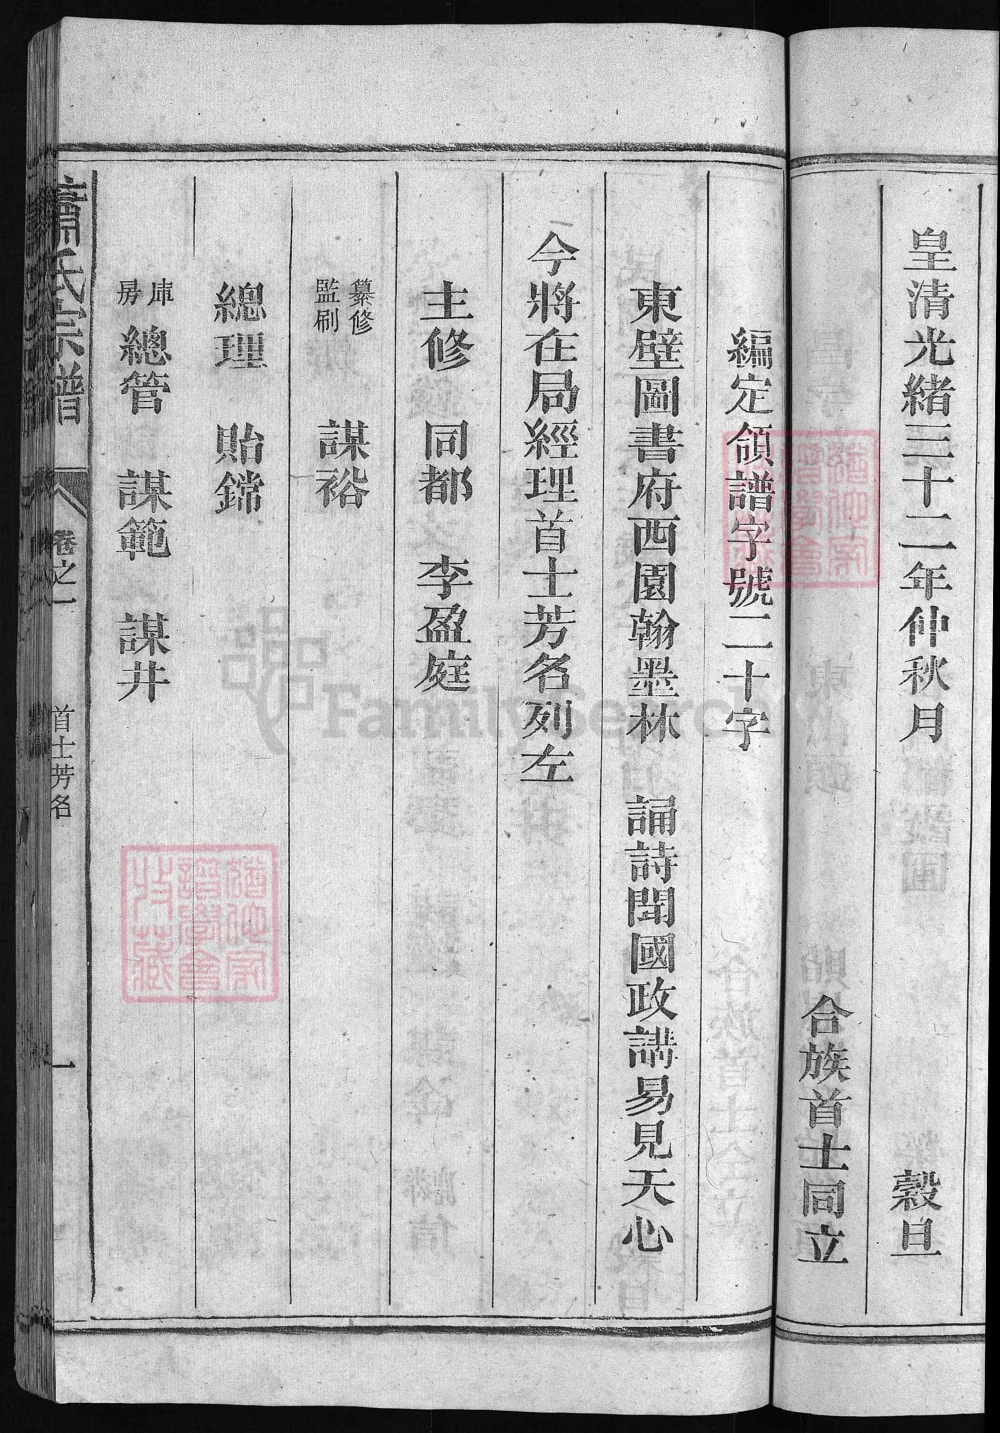 皇清光緒三十二年仲秋月 穀旦
合族首士同立
編定領譜字號二十字
東壁圖書府西園翰墨林 誦詩聞國政講易見天心
今將在局經理首士芳名列左
主修 同都 李盈庭
纂修監刷 謀裕
總理 貽鐺
庫房總管 謀範 謀井
蕭氏宗譜 卷之一 首士芳名 一
FamilySearch